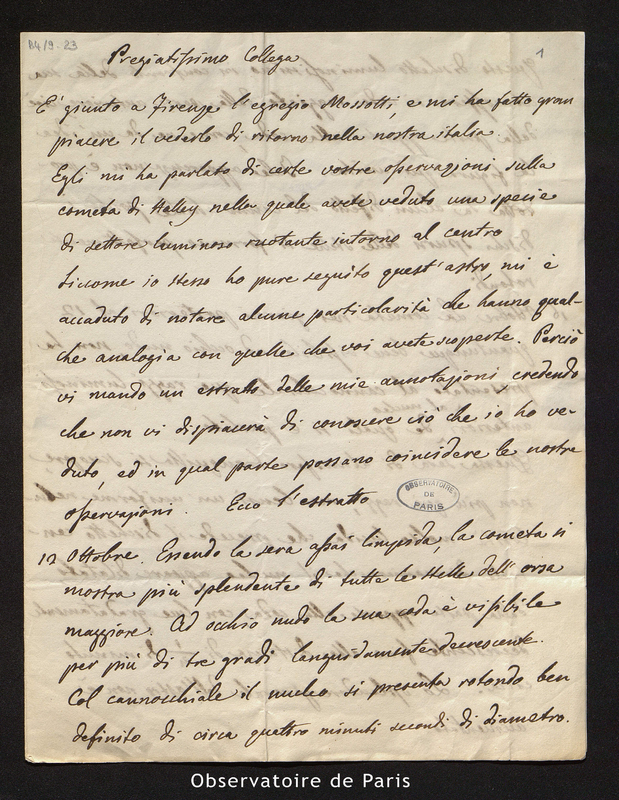 B4/9-23
1
Pregiatissimo Collega
E' giunto a Firenze l'egregio Mossotti, e mi ha fatto gran
piacere il vederlo di ritorno nella nostra italia.
Egli mi ha parlato di certe vostre osservazioni sulla
cometa di Halley nella quale avete veduto una specie
di settore luminoso ruotante intorno al centro
Siccome io stesso ho pure seguito quest'astro, mi è
accaduto di notare alcune particolarità che hanno qual-
che analogia con quelle che voi avete scoperte. Perciò
vi mando un estratto delle mie annotazioni, credendo
che non vi dispiacerà di conoscere ciò che io ho ve-
duto, ed in qual parte possano coincidere le nostre
osservazioni. Ecco l'estratto
OBSERVATOIRE
DE
PARIS
12 Ottobre. Essendo la sera assai limpida, la cometa si
mostra più splendente di tutte le stelle dell'orsa
maggiore. Ad occhio nudo la sua coda è visibile
per più di tre gradi languidamente decrescente.
Col cannocchiale il nucleo si presenta rotondo ben
definito di circa quattro minuti secondi di diametro.
Observatoire de Paris